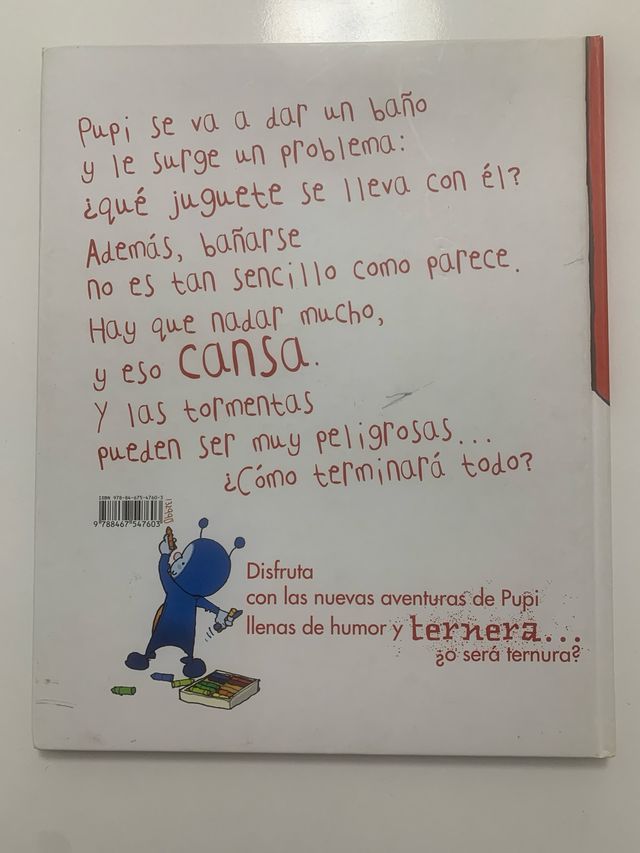 Pupi se va a dar un baño
y le surge un problema:
¿qué juguete se lleva con él?
Además, bañarse
no es tan sencillo como parece.
Hay que nadar mucho,
y eso cansa.
Y las tormentas
pueden ser muy peligrosas...
¿Cómo terminará todo?
ISBN 978-84-675-4760-3
9 788467 547603
Disfruta
con las nuevas aventuras de Pupi
llenas de humor y ternera...
¿o será ternura?